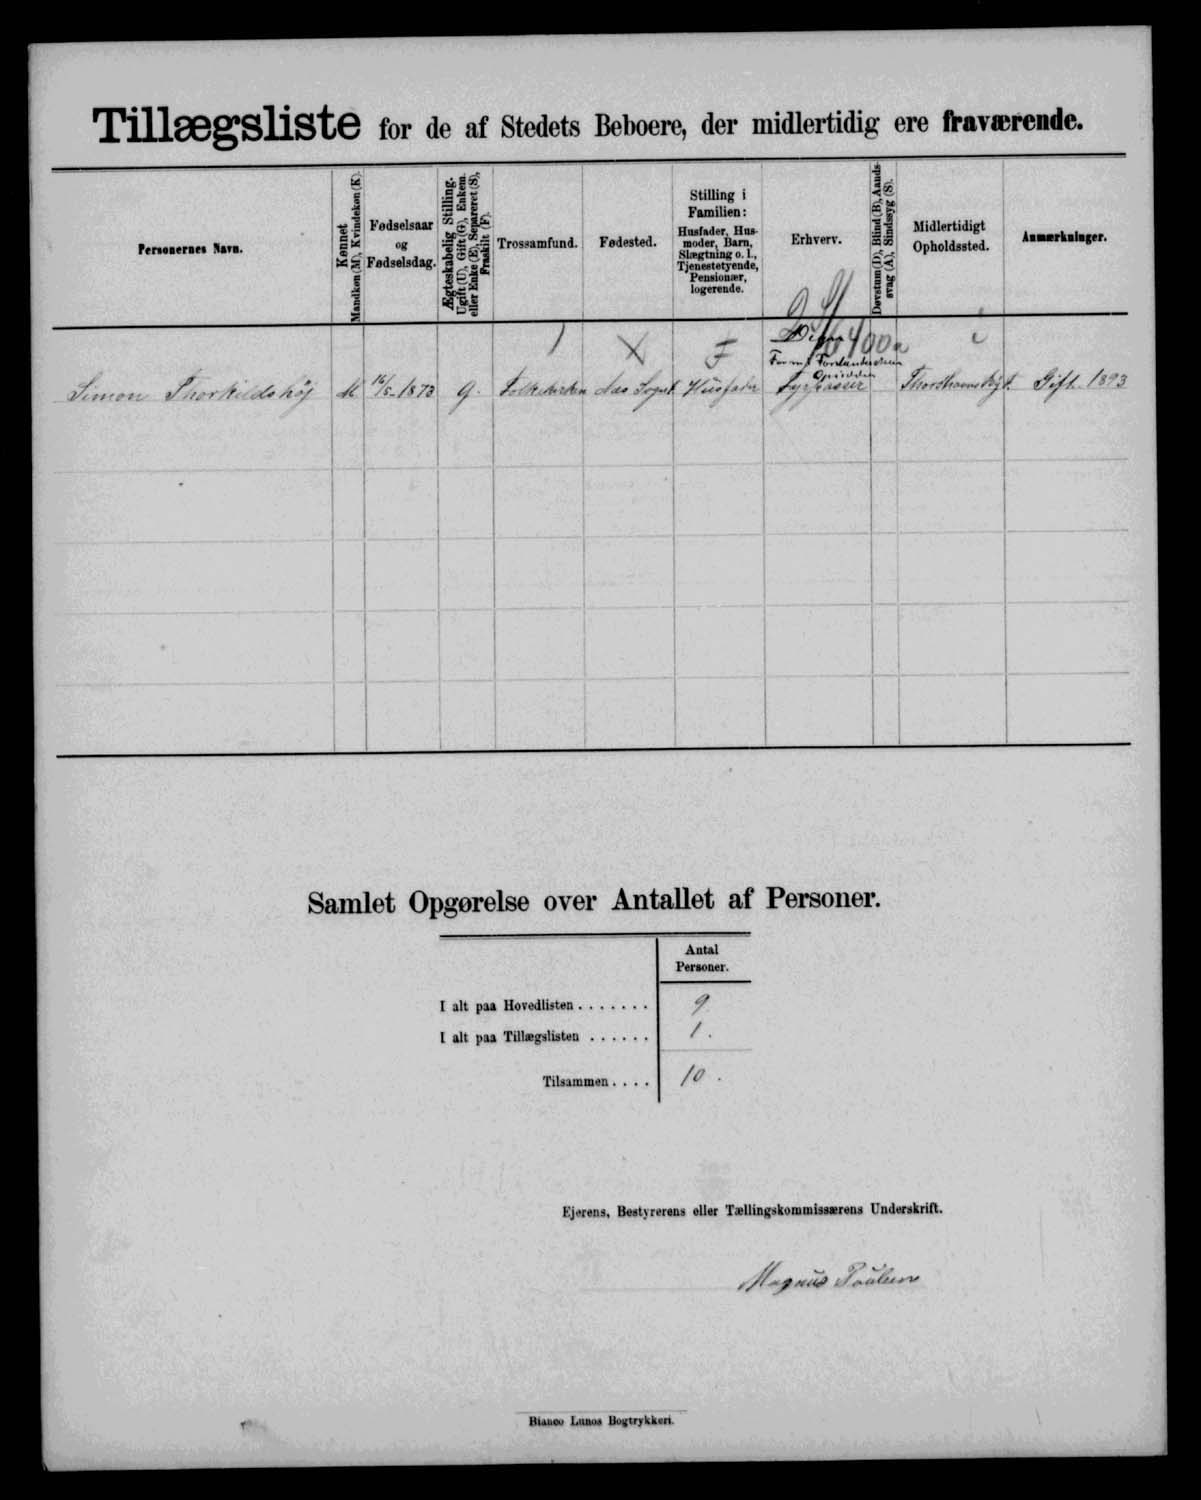 Tillægsliste for de af Stedets Beboere, der midlertidig ere fraværende.
Personernes Navn.
Kønnet
Mandkøn (M), Kvindekøn (K).
Fødselsaar
og
Fødselsdag.
Ægteskabelig Stilling.
Ugift (U), Gift (G), Enkem.
eller Enke (E), Separeret (S),
Fraskilt (F).
Trossamfund.
Fødested.
Stilling i
Familien:
Husfader, Hus-
moder, Barn,
Slægtning o. l.,
Tjenestetyende,
Pensionær,
logerende.
Erhverv.
Døvstum (D), Blind (B), Aands-
svag (A), Sindssyg (S).
Midlertidigt
Opholdssted.
Anmærkninger.
Simon Thorkildshøj M 16/5-1873 g. Folkekirken Aas Sogn Husfader Fyrpasser Gift 1893
Samlet Opgørelse over Antallet af Personer.
Antal
Personer.
I alt paa Hovedlisten . . . . . . . 9
I alt paa Tillægslisten . . . . . . 1.
Tilsammen . . . . 10.
Ejerens, Bestyrerens eller Tællingskommissærens Underskrift.
Magnus Poulsen
Bianco Lunos Bogtrykkeri.